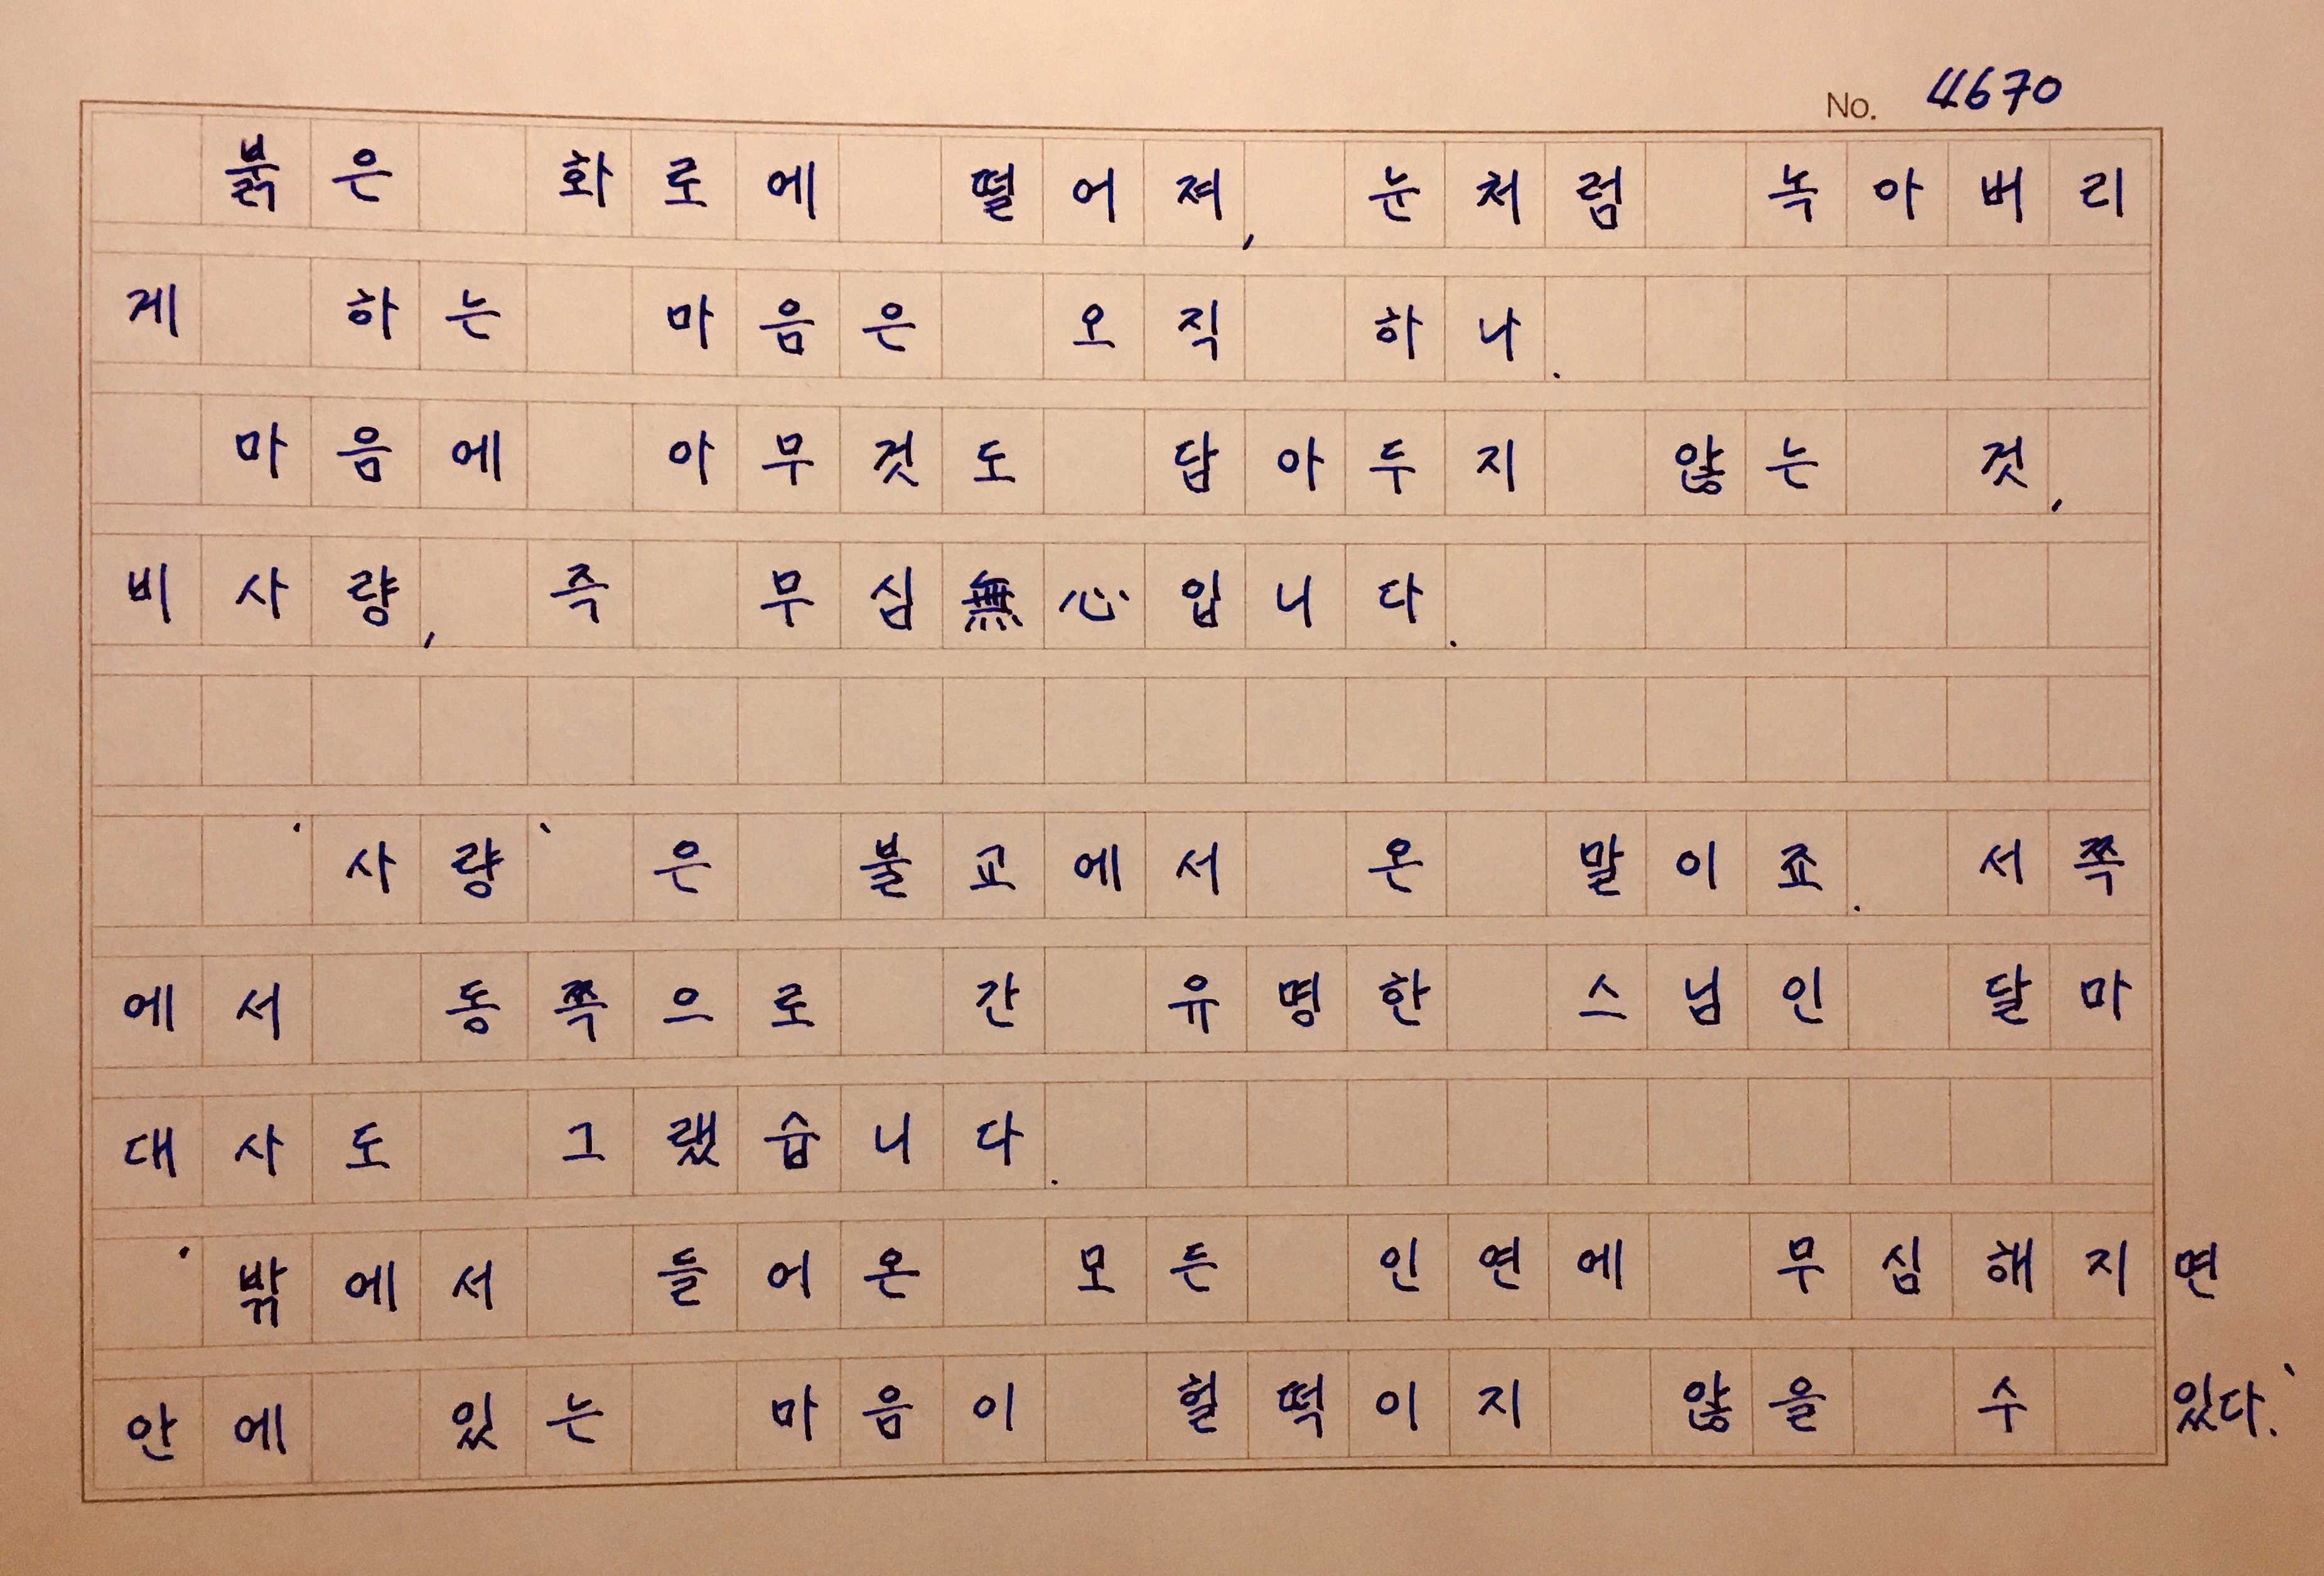 No. 4670
붉은 화로에 떨어져, 눈처럼 녹아버리
게 하는 마음은 오직 하나.
마음에 아무것도 담아두지 않는 것,
비사량, 즉 무심無心입니다.
'사량'은 불교에서 온 말이죠. 서쪽
에서 동쪽으로 간 유명한 스님인 달마
대사도 그랬습니다.
'밖에서 들어온 모든 인연에 무심해지면
안에 있는 마음이 헐떡이지 않을 수 있다.'